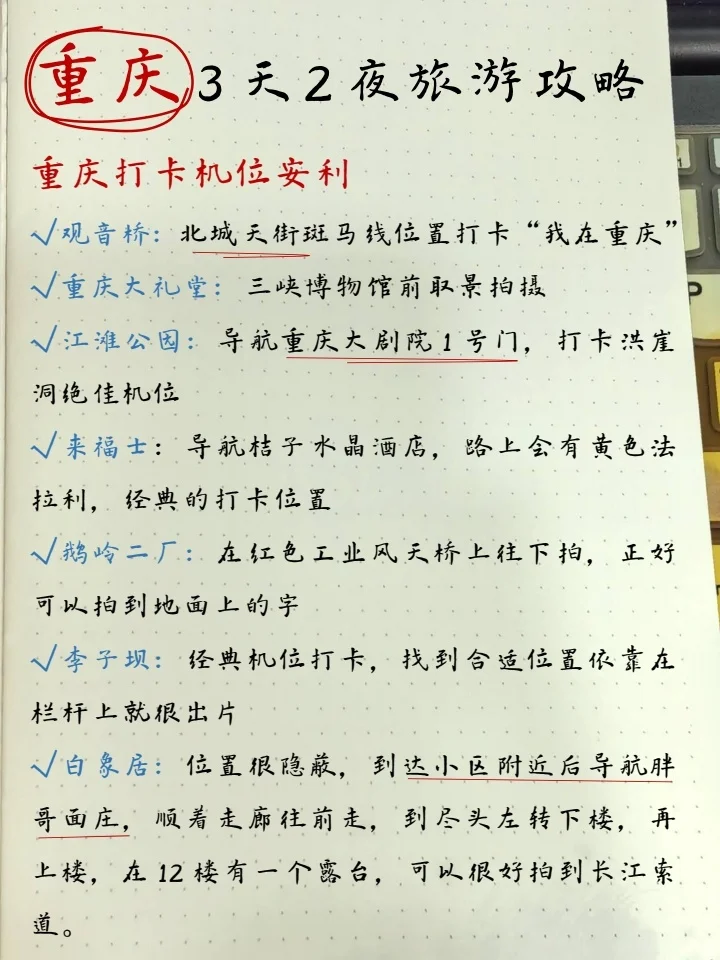 重庆3天2夜旅游攻略
重庆打卡机位安利
√观音桥：北城天街斑马线位置打卡“我在重庆”
√重庆大礼堂：三峡博物馆前取景拍摄
√江滩公园：导航重庆大剧院1号门，打卡洪崖
洞绝佳机位
√来福士：导航桔子水晶酒店，路上会有黄色法
拉利，经典的打卡位置
√鹅岭二厂：在红色工业风天桥上往下拍，正好
可以拍到地面上的字
√李子坝：经典机位打卡，找到合适位置依靠在
栏杆上就很出片
√白象居：位置很隐蔽，到达小区附近后导航胖
哥面庄，顺着走廊往前走，到尽头左转下楼，再
上楼，在12楼有一个露台，可以很好拍到长江索
道。
P